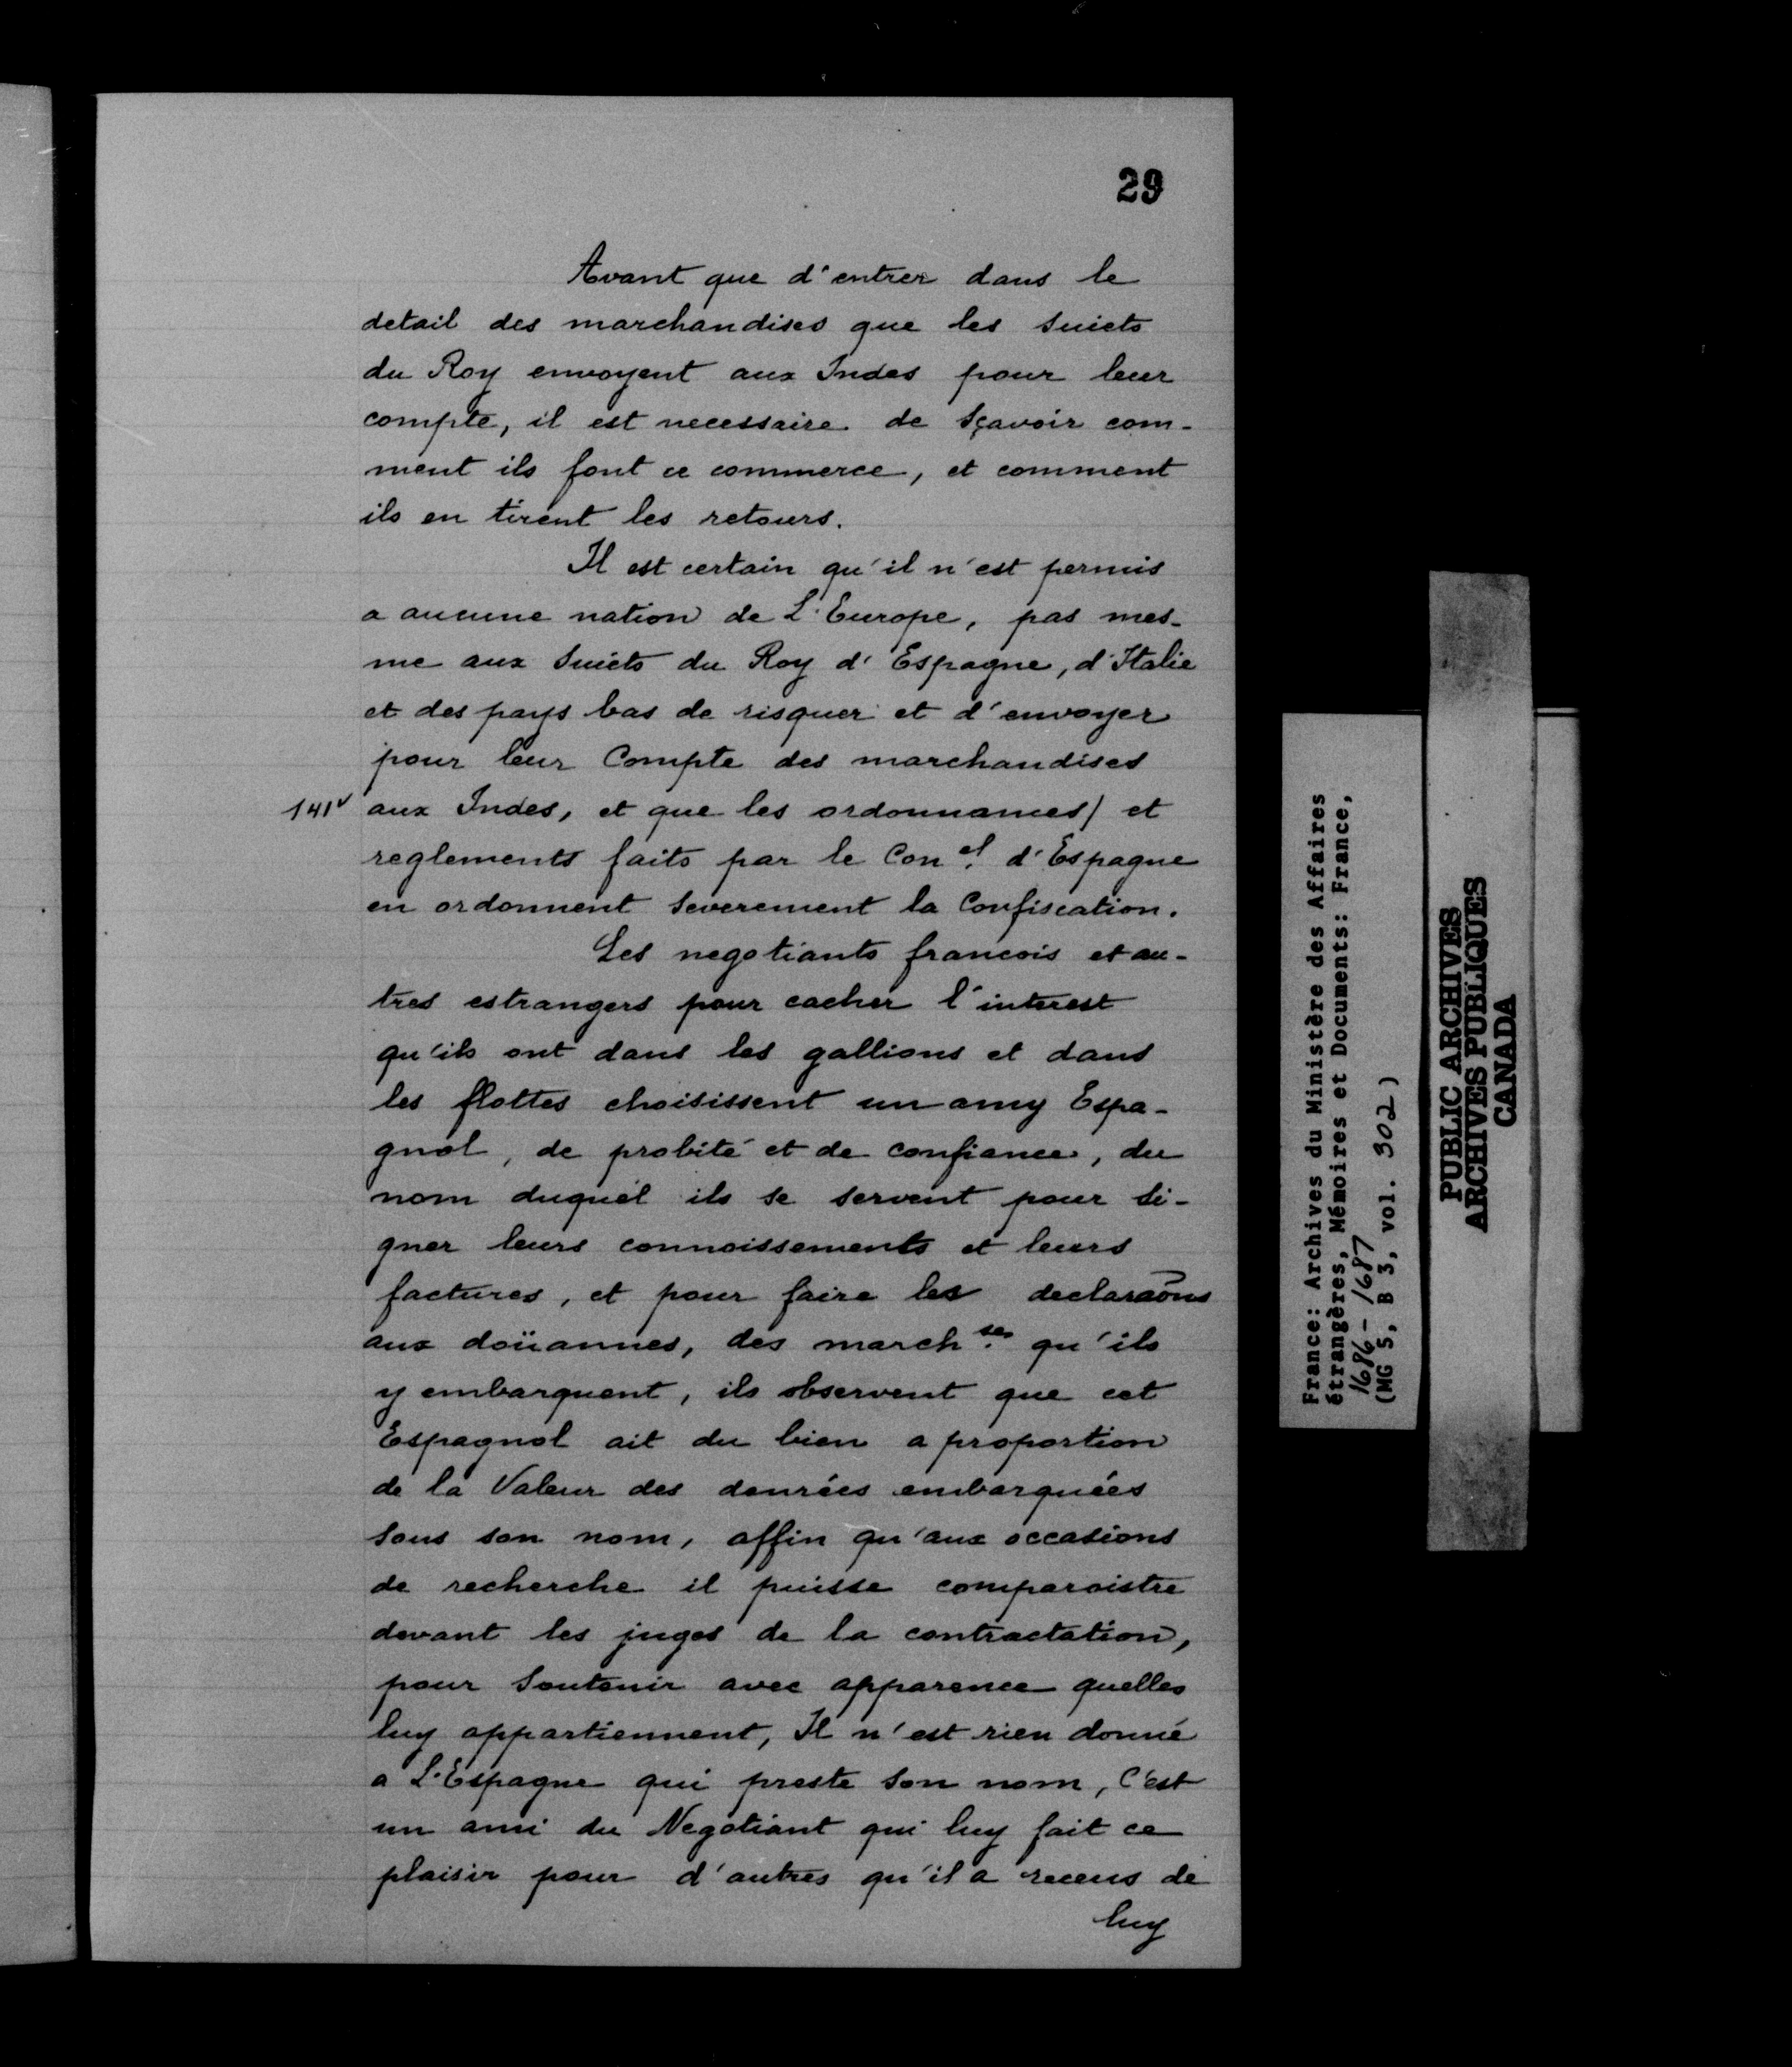 29
Avant que d'entrer dans le
detail des marchandises que les suiets
du Roy envoyent aux Indes pour leur
compte, il est necessaire de sçavoir com-
ment ils font ce commerce, et comment
ils en tirent les retours.
Il est certain qu'il n'est permis
a aucune nation de L'Europe, pas mes-
me aux suiets du Roy d'Espagne, d'Italie
et des pays bas de risquer et d'envoyer
pour leur Compte des marchandises
141v aux Indes, et que les ordonnances/ et
reglements faits par le Con.el d'Espagne
en ordonnent severement la Confiscation.
Les negotiants francois et au-
tres estrangers pour cacher l'interest
qu'ils ont dans les gallions et dans
les flottes choisissent un amy Espa-
gnol, de probité et de confiance, du
nom duquel ils se servent pour si-
gner leurs connoissements et leurs
factures, et pour faire les declaraõns
aux doüannes, des march.ses qu'ils
y embarquent, ils observent que cet
Espagnol ait du bien a proportion
de la Valeur des denrées embarquées
sous son nom, affin qu'aux occasions
de recherche il puisse comparoistre
devant les juges de la contractation,
pour soutenir avec apparence quelles
luy appartiennent, Il n'est rien donné
a L'Espagne qui preste son nom, C'est
un ami du Negotiant qui luy fait ce
plaisir pour d'autres qu'il a receus de
luy
France: Archives du Ministère des Affaires
étrangères, Mémoires et Documents: France,
1686-1687
(MG 5, B 3, vol. 302)
PUBLIC ARCHIVES
ARCHIVES PUBLIQUES
CANADA